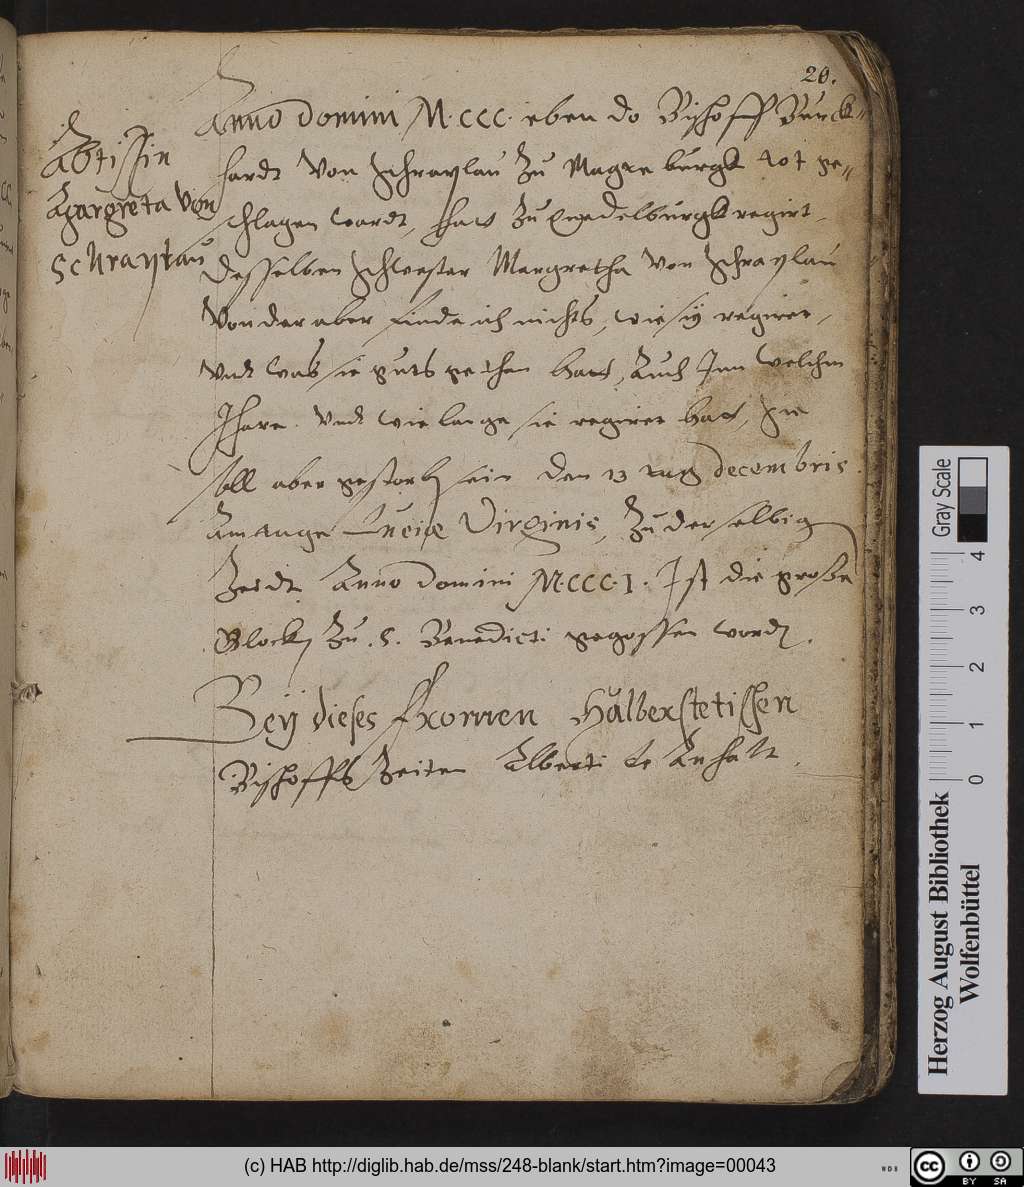 20.
Abtissin
Margreta von
Schraplau
Anno domini M.CCC. eben do Bischoff Burck-
hardt von Schraplau zu Magdeburgk tot ge-
schlagen wardt, hatt zu Quedelburgk regirt,
desselben Schwester Margretha von Schraplau
Von der aber finde ich nichts, wie sie regiret,
Undt was sie guts gethan hatt, Auch Inn welchem
Jhare. Undt wie lange sie regiret hatt, Sie
soll aber gestorben sein den 13 tag decembris.
Am tage Luciae Virginis, Zu derselbigen
Zeidt Anno domini M.CCC.I. Ist die große
Glocken zu .S. Benedicti gegossen worden.
Bey dieses frommen Halberstetischen
Bischoffs Zeiten Alberti de Anhalt.
Gray Scale
0 1 2 3 4
Herzog August Bibliothek
Wolfenbüttel
(c) HAB http://diglib.hab.de/mss/248-blank/start.htm?image=00043
WDB
CC BY SA